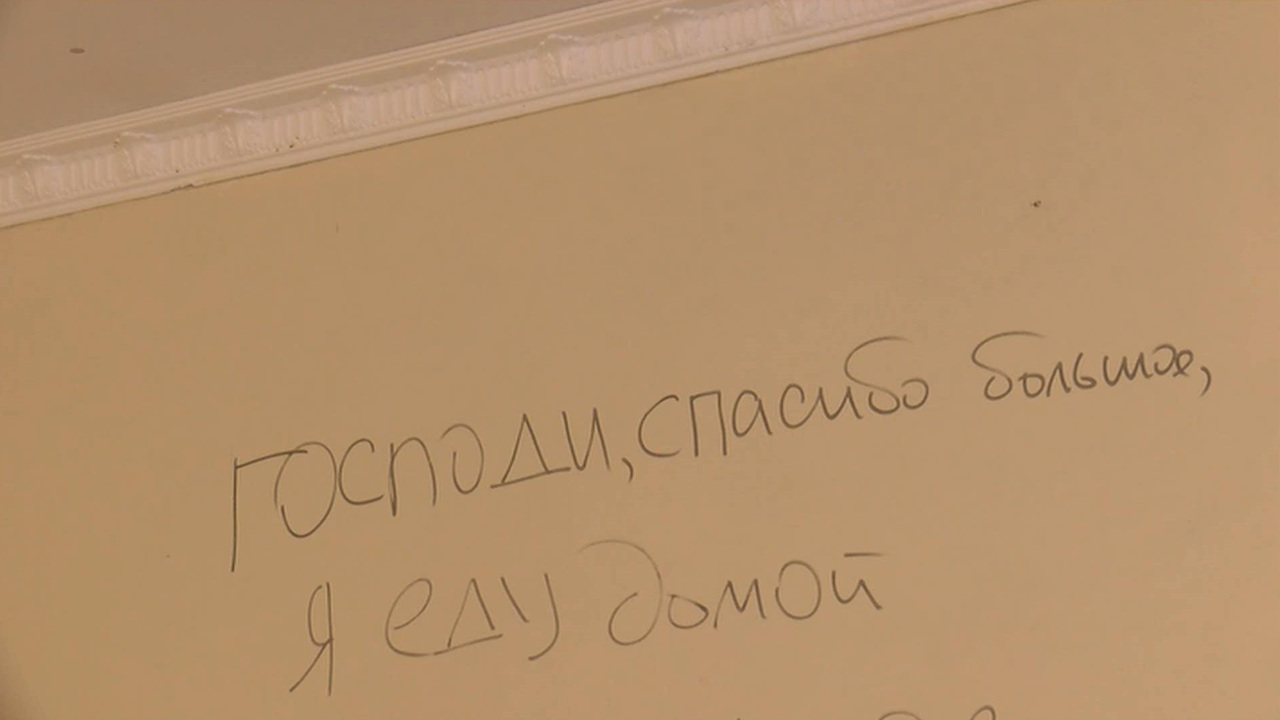 Господи, спасибо большое,
я еду домой